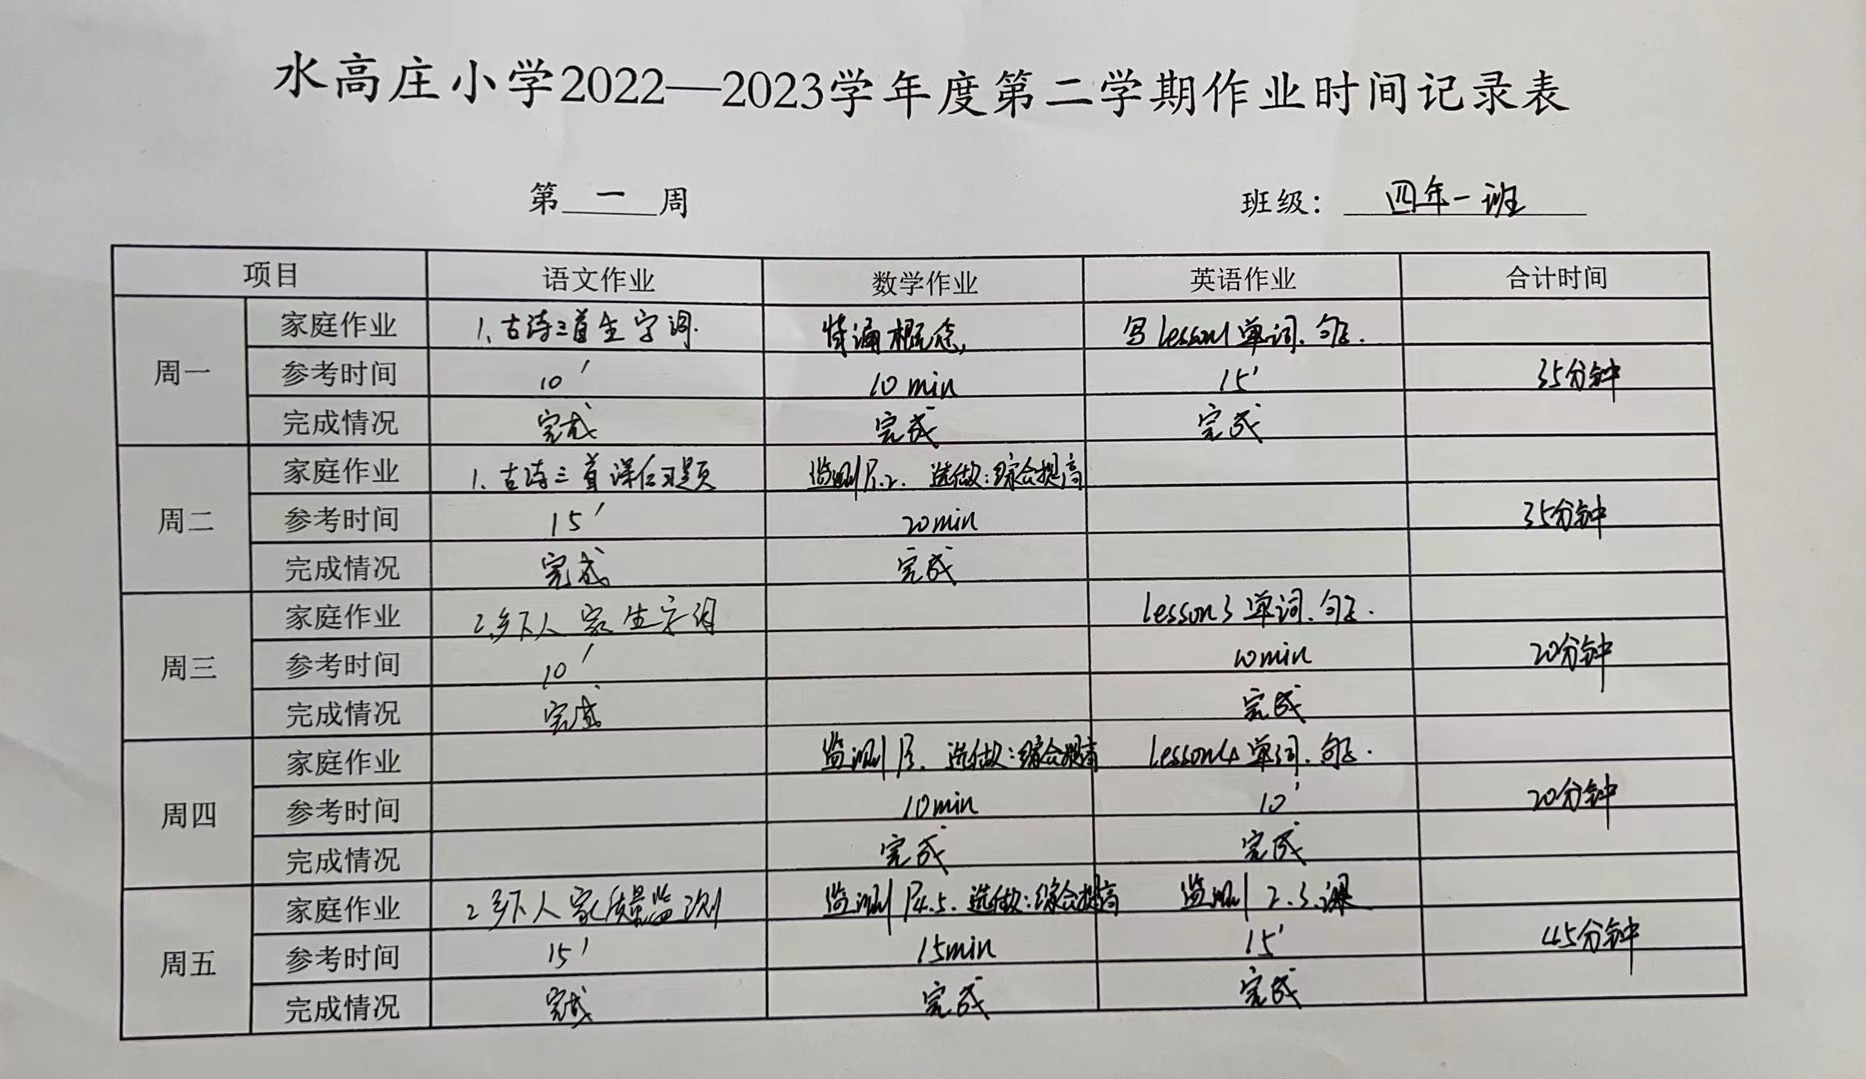 水高庄小学2022—2023学年度第二学期作业时间记录表
第 一 周 班级： 四年一班
项目 语文作业 数学作业 英语作业 合计时间
周一
家庭作业 1、古诗三首生字词. 背诵概念, 写lesson1单词、句子.
参考时间 10′ 10min 15′ 35分钟
完成情况 完成 完成 完成
周二
家庭作业 1、古诗三首课后习题 监测P1.2. 选做:综合提高
参考时间 15′ 20min 35分钟
完成情况 完成 完成
周三
家庭作业 2、乡下人家生字词 lesson3单词、句子.
参考时间 10′ 10min 20分钟
完成情况 完成 完成
周四
家庭作业 监测P3. 选做:综合提高 lesson4单词、句子.
参考时间 10min 10′ 20分钟
完成情况 完成 完成
周五
家庭作业 2乡下人家质量监测 监测P4.5. 选做:综合提高 监测2.3.课
参考时间 15′ 15min 15′ 45分钟
完成情况 完成 完成 完成